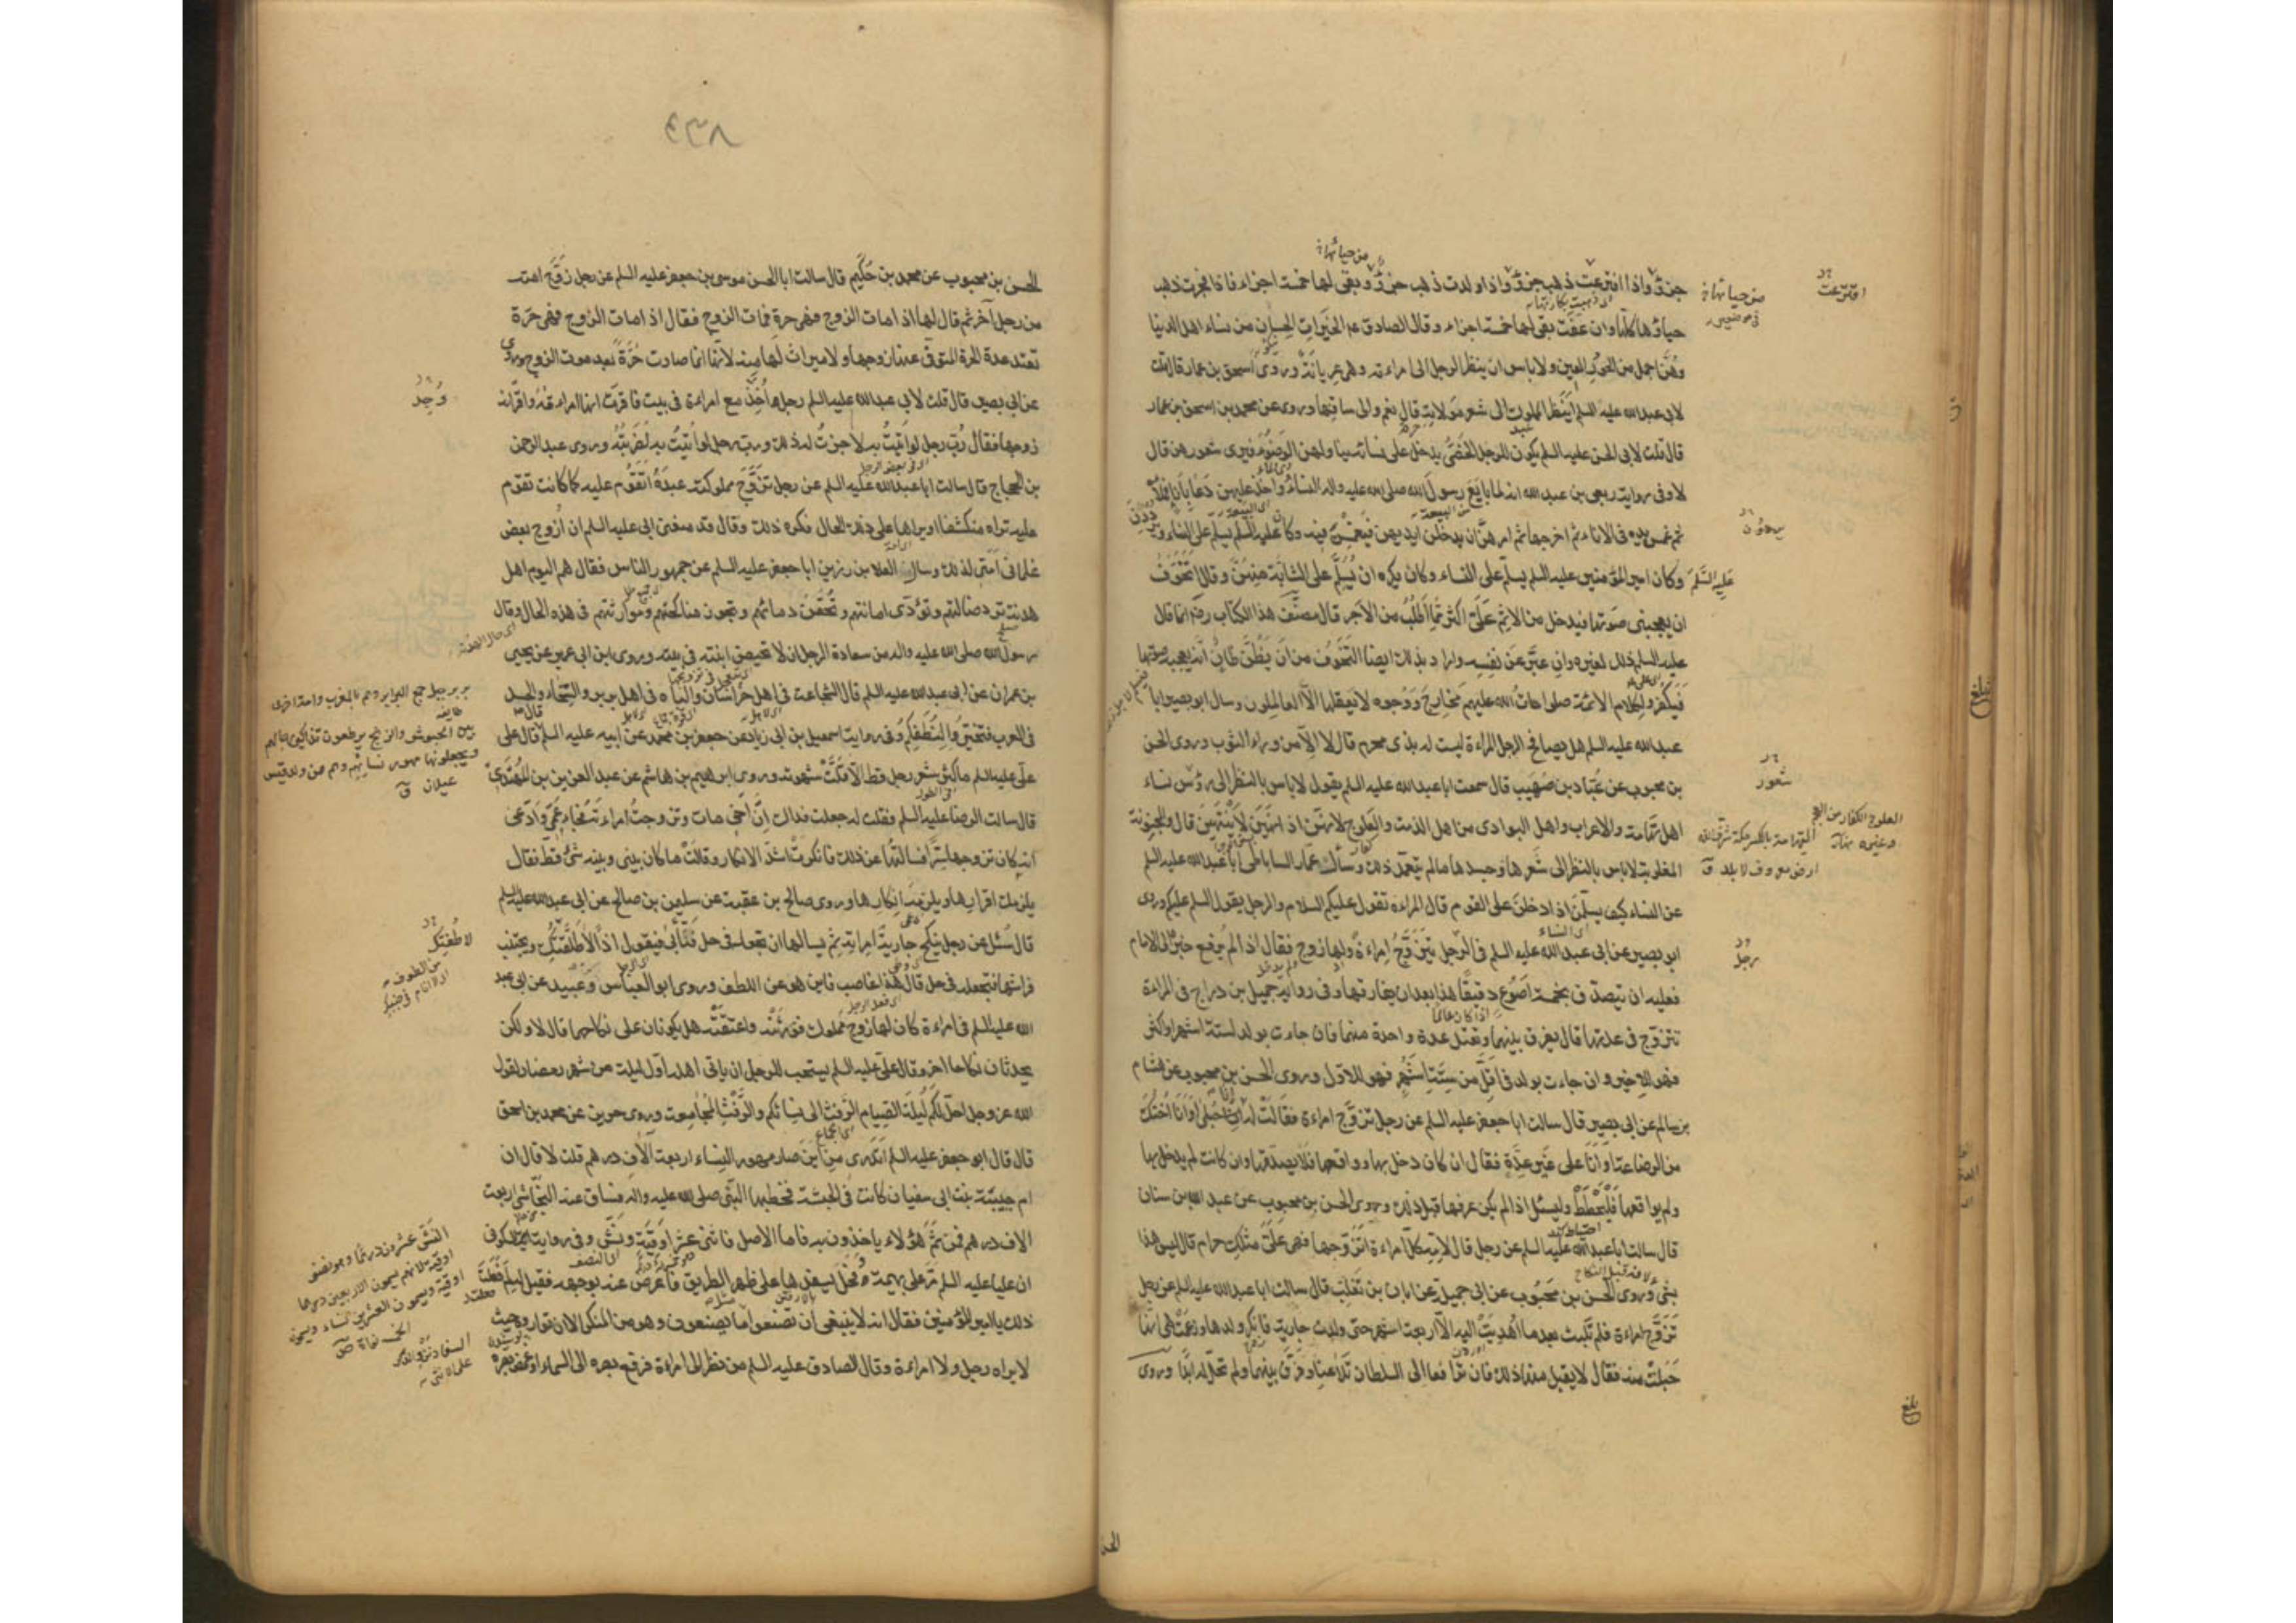 من حيائها
جزؤ واذا افترعت ذهب جزؤ واذا ولدت ذهب جزؤ وبقى لها خمسة اجزاء فاذا فجرت ذهب
حياؤها كله وان عفّت بقى لها خمسة اجزاء وقال الصادق ع الخيرات الحسان من نساء اهل الدنيا
وهنّ اجمل من الحور العين ولا باس ان ينظر الرجل الى امراءته وهى عريانة وروى اسحق بن عمار قال قلت
لابى عبد الله عليه السلم اينظر المملوك الى شعر مولاته قال نعم والى ساقها وروى عن محمد بن اسحق بن عمار
قال قلت لابى الحسن عليه السلم يكون للرجل الخصىّ يدخل على نسائه يناولهن الوضوء فيرى شعورهن قال
لا وفى رواية ربعى بن عبد الله انه لما بايع رسول الله صلى الله عليه واله النساء واخذ عليهن دعا باناء فملأه
ثم غمس يده فى الاناء ثم اخرجها ثم امرهنّ ان يدخلن ايديهن فيغمسن فيه وكان عليه السلم يسلّم على النساء ويرددن
عليه السّلم وكان امير المؤمنين عليه السلم يسلّم على النساء وكان يكره ان يسلّم على الشابّة منهنّ وقال اتخوّف
ان يعجبنى صوتها فيدخل من الاثم علىّ اكثر مما اطلب من الاجر قال مصنّف هذا الكتاب رضه انما قال
عليه السلم ذلك لغيره وان عبّر عن نفسه واراد بذلك ايضا التخوف من ان يظنّ ظانّ انّه يعجبه صوتها
فيكفر ولكلام الائمة صلوات الله عليهم مخارج ووجوه لا يعقلها الاّ العالمون وسال ابو بصير ابا
عبد الله عليه السلم هل يصافح الرجل المراءة ليست له بذى محرم قال لا الاّ من وراء الثوب وروى الحسن
بن محبوب عن عبّاد بن صهيب قال سمعت ابا عبد الله عليه السلم يقول لا باس بالنظر الى رؤس نساء
اهل تهامة والاعراب واهل البوادى من اهل الذمة والعلوج لانهنّ اذا نهين لا ينتهين قال والمجنونة
المغلوبة لا باس بالنظر الى شعرها وجسدها ما لم يتعمد ذلك وسأل عمّار الساباطى ابا عبد الله عليه السلم
عن النساء كيف يسلّمن اذا دخلن على القوم قال المراءة تقول عليكم السلام والرجل يقول السلم عليكم وروى
ابو بصير عن ابى عبد الله عليه السلم فى الرجل يتزوّج امراءة ولها زوج فقال اذا لم يرفع خبره الى الامام
فعليه ان يتصدّق بخمسة اصوع دقيقًا هذا بعد ان يفارقها وفى رواية جميل بن دراج فى المراءة
تتزوج فى عدتها قال يفرق بينهما وتعتد عدة واحدة منهما فان جاءت بولد لستة اشهر او اكثر
فهو للاخير وان جاءت بولد فى اقلّ من ستة اشهر فهو للاوّل وروى الحسن بن محبوب عن هشام
بن سالم عن ابى بصير قال سالت ابا جعفر عليه السلم عن رجل تزوّج امراءة فقالت له انا حبلى او انا اختك
من الرضاعة او انا على غير عدّة فقال ان كان دخل بها وواقعها فلا يصدّقها وان كانت لم يدخل بها
ولم يواقعها فليحتط وليسئل اذا لم يكن عرفها قبل ذلك وروى الحسن بن محبوب عن عبد الله بن سنان
قال سالت ابا عبد الله عليه السلم عن رجل قال لامّه كلّ امراءة اتزوّجها فهى علىّ مثلك حرام قال ليس هذا
بشئ وروى الحسن بن محبوب عن ابى جميلة عن ابان بن تغلب قال سالت ابا عبد الله عليه السلم عن رجل
تزوّج امراءة فلم تلبث بعد ما اهديت اليه الاّ اربعة اشهر حتى ولدت جارية فانكر ولدها وزعمت هى انها
حبلت منه فقال لا يقبل منها ذلك فان ترافعا الى السلطان تلاعنا وفرّق بينهما ولم تحلّ له ابدًا وروى
الحسن
افترعت
من حيائها
شعور
رجل
بلغ
٤٣٨
الحسن بن محبوب عن محمد بن حكيم قال سالت ابا الحسن موسى بن جعفر عليه السلم عن رجل زوّج امته
من رجل آخر ثم قال لها اذا مات الزوج فهى حرة فمات الزوج فقال اذا مات الزوج فهى حرّة
تعتد عدة الحرة المتوفى عنها زوجها ولا ميراث لها منه لانّها انما صارت حرّة بعد موت الزوج وروى
عن ابى بصير قال قلت لابى عبد الله عليه السلم رجل اُخذ مع امراءة فى بيت فاقرّت انها امراءته واقرّ انه
زوجها فقال رُبّ رجل لو اتيتُ به لاجزتُ له ذلك وربّ رجل لو اُتيتُ به لضربته وروى عبد الرحمن
بن الحجاج قال سالت ابا عبد الله عليه السلم عن رجل تزوّج مملوكته عبده اتقوم عليه كما كانت تقوم
عليه تراه منكشفا او يراها على ذلك الحال فكره ذلك وقال قد منعنى ابى عليه السلم ان ازوج بعض
غلمانى امتى لذلك وسال العلا بن رزين ابا جعفر عليه السلم عن جمهور الناس فقال هم اليوم اهل
هدنة تردّ ضالتهم وتؤدّى امانتهم وتحقن دمائهم وتجوز مناكحتهم وموارثتهم فى هذه الحال وقال
رسول الله صلى الله عليه واله من سعادة الرجل ان لا تحيض ابنته فى بيته وروى ابن ابى عمير عن يحيى
بن عمران عن ابى عبد الله عليه السلم قال الشجاعة فى اهل خراسان والباه فى اهل بربر والسّخاء والحسد
فى العرب فتخيّروا لنطفكم وفى رواية اسمعيل بن ابى زياد عن جعفر بن محمد عن ابيه عليه السلم قال قال على
علىّ عليه السلم ما كثر شعر رجل قط الاّ قلّت شهوته وروى ابرهيم بن هاشم عن عبد العزيز بن المهتدى
قال سالت الرضا عليه السلم فقلت له جعلت فداك انّ اخى مات وتزوجتُ امراءته فجاء عمّى وادّعى
انه كان تزوجها سرّا فسالتها عن ذلك فانكرت اشدّ الانكار وقالت ما كان بينى وبينه شئ قط فقال
يلزمك اقرارها ويلزمه انكارها وروى صالح بن عقبة عن سليمن بن صالح عن ابى عبد الله عليه السلم
قال سُئل عن رجل ينكح جارية امراته ثم يسالها ان تجعله فى حل فتأبى فيقول اذًا لاطلقنّك ويجتنب
فراشها فتجعله فى حل قال هذا غاصب فاين هو عن اللطف وروى ابو العباس وعبيد عن ابى عبد
الله عليه السلم فى امراءة كان لها زوج مملوك فورثته واعتقته هل يكونان على نكاحهما قال لا ولكن
يجددان نكاحا آخر وقال علىّ عليه السلم يستحب للرجل ان ياتى اهله اوّل ليلة من شهر رمضان لقول
الله عز وجل احلّ لكم ليلة الصيام الرفث الى نسائكم والرّفث المجامعة وروى حريز عن محمد بن اسحق
قال قال ابو جعفر عليه السلم اتدرى من اين صار مهور النساء اربعة آلاف درهم قلت لا قال ان
ام حبيبة بنت ابى سفيان كانت فى الحبشة فخطبها النبّى صلى الله عليه واله فساق عنه النجاشى اربعة
الاف درهم فمن ثمّ هؤلاء ياخذون به فاما الاصل فاثنى عشر اوقيّة ونشّ وفى رواية السكونى
ان عليا عليه السلم مرّ على بهيمة وفحل يسفدها على ظهر الطريق فاعرض عنه بوجهه فقيل له لم فعلت
ذلك يا امير المؤمنين فقال انه لا ينبغى ان تصنعوا ما يصنعون وهو من المنكر الا ان تواروه حيث
لا يراه رجل ولا امراءة وقال الصادق عليه السلم من نظر الى امراءة فرفع بصره الى السماء او غمض بصره